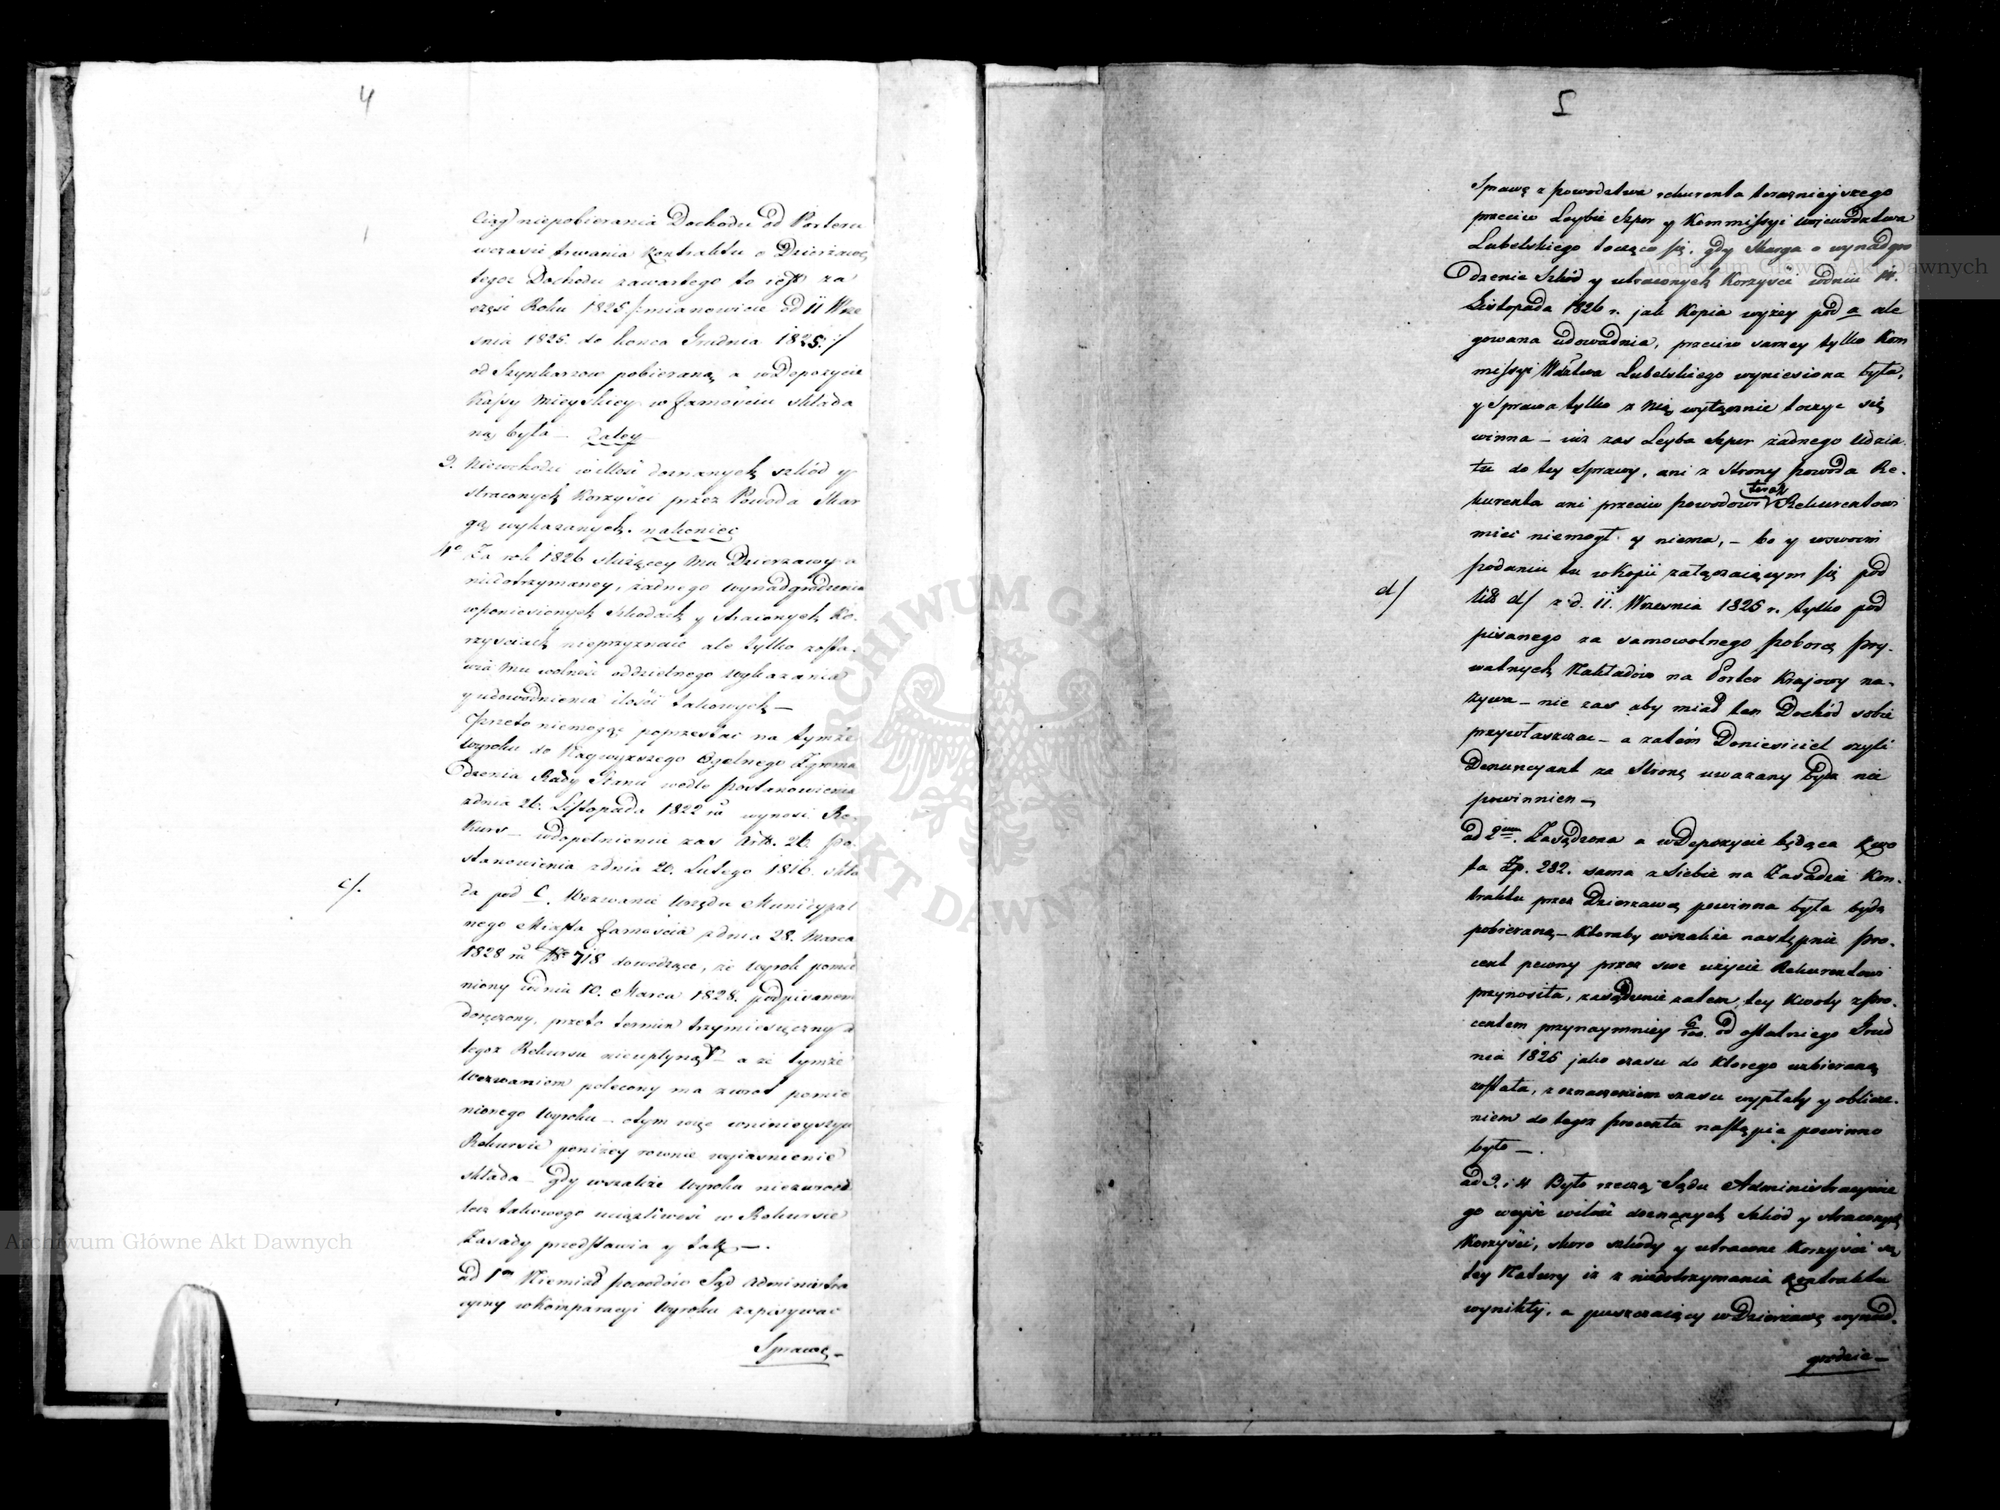 4
ciąg niepobierania Dochodu od Porteru
wczasie trwania Kontraktu o Dzierzawę
tegoż Dochodu zawartego to iest za
część Roku 1825 /:mianowicie od 11 Wrze
snia 1825. do konca Grudnia 1825:/
od Szynkarzow pobieraną a w Depozycie
Kassy Mieyskiey w Zamościu składa
ną była – daley
3. Niewchodzi w ilość doznanych szkód y
straconych Korzyści przez Powoda Skar
gą wykazanych. nakoniec
4o Za rok 1826 służącey mu Dzierzawy a
niedotrzymaney, żadnego wynadgrodzenia
w poniesionych Szkodach y straconych Ko-
rzyściach nieprzyznaie ale tylko zosta-
wia mu wolność oddzielnego wykazania
y udowodnienia ilości takowych –
Przeto niemogąc poprzestać na tymże
wyroku do Naywyższego Ogolnego Zgroma
dzenia Rady Stanu wedle postanowienia
zdnia 26. Listopada 1822 ru wynosi Re-
kurs – wdopełnieniu zas Artt. 26. Po-
stanowienia zdnia 20. Lutego 1816. skła
c/.
da pod C. Wezwanie Urzędu Municypal
nego Miasta Zamościa zdnia 28. Marca
1828 ru No 718 dowodzące, że wyrok pomie
niony wdniu 10. Marca 1828. podpisanem
doręczony, przeto termin trzymiesięczny z
tegoż Rekursu nieupłynął – a że tymże
Wezwaniem polecony ma zwrot pomie
nionego Wyroku – otym więc wninieyszym
Rekursie poniżey rownie wyiasnienie
składa – gdy wszakże Wyroku niezwraca
lecz takowego uciążliwość w Rekursie
Zasady przedstawia y tak –.
ad 1m Niemiał powodów Sąd Administra
cyiny w Komparacyi Wyroku zapisywac
Sprawę –
5
Sprawę z powodztwa rekurenta teraznieyszego
przeciw Leybie Szper y Kommissyi Woiewodztwa
Lubelskiego toczącą się. gdy Skarga o wynadgro
dzenie Szkód y utraconych Korzyści wdniu
Listopada 1826 r. jak Kopia wyżey pod a ale
gowana udowadnia, przeciw samey tylko Kom
missyi Wdztwa Lubelskiego wyniesiona była,
y Sprawa tylko z Nią wyłącznie toczyc się
winna – iuż zas Leyba Szper żadnego Udzia
łu do tey Sprawy, ani z Strony powoda Re-
kurenta ani przeciw powodowi teraz Rekurentowi
mieć niemogł y niema, – bo y wswoim
podaniu tu w Kopii załączaiącym się pod
d/
Litt d/ z d. 11. Wrzesnia 1825 r. tylko pod
pisanego za samowolnego poborcę pry-
watnych Nakładów na Porter Kraiowy na-
zywa – nie zas aby miał ten Dochód sobie
przywłaszczac – a zatém Doniesiciel czyli
Denuncyant za Stronę uwazany bydz nie
powinnien –
ad 2um. Zasądzona a w Depozycie będąca Kwo
ta Zp. 282. sama z siebie na Zasadzie Kon-
traktu przez Dzierzawcę powinna była bydz
pobieraną – Ktoraby wszakże następnie pro-
cent pewny przez swe użycie Rekurentowi
przynosiła, zasądzenie zatem tey Kwoty z pro-
centem przynaymniey 6/100. od ostatniego Grud
nia 1825 jako czasu do Ktorego uzbieraną
została, z oznaczeniem czasu wypłaty y oblicze-
niem do tegoż procentu nastąpić powinno
było –.
ad 3. i 4 Było rzeczą Sądu Administracyine
go weyść w ilość doznanych Szkód y straconych
Korzyści, skoro szkody y utracone Korzyści są
tey Natury iż z niedotrzymania Kontraktu
wynikły, a puszczaiący w Dzierzawę wynad-
grodzić –